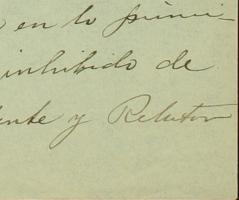 en lo primi-
inhibido de
ente y Relator